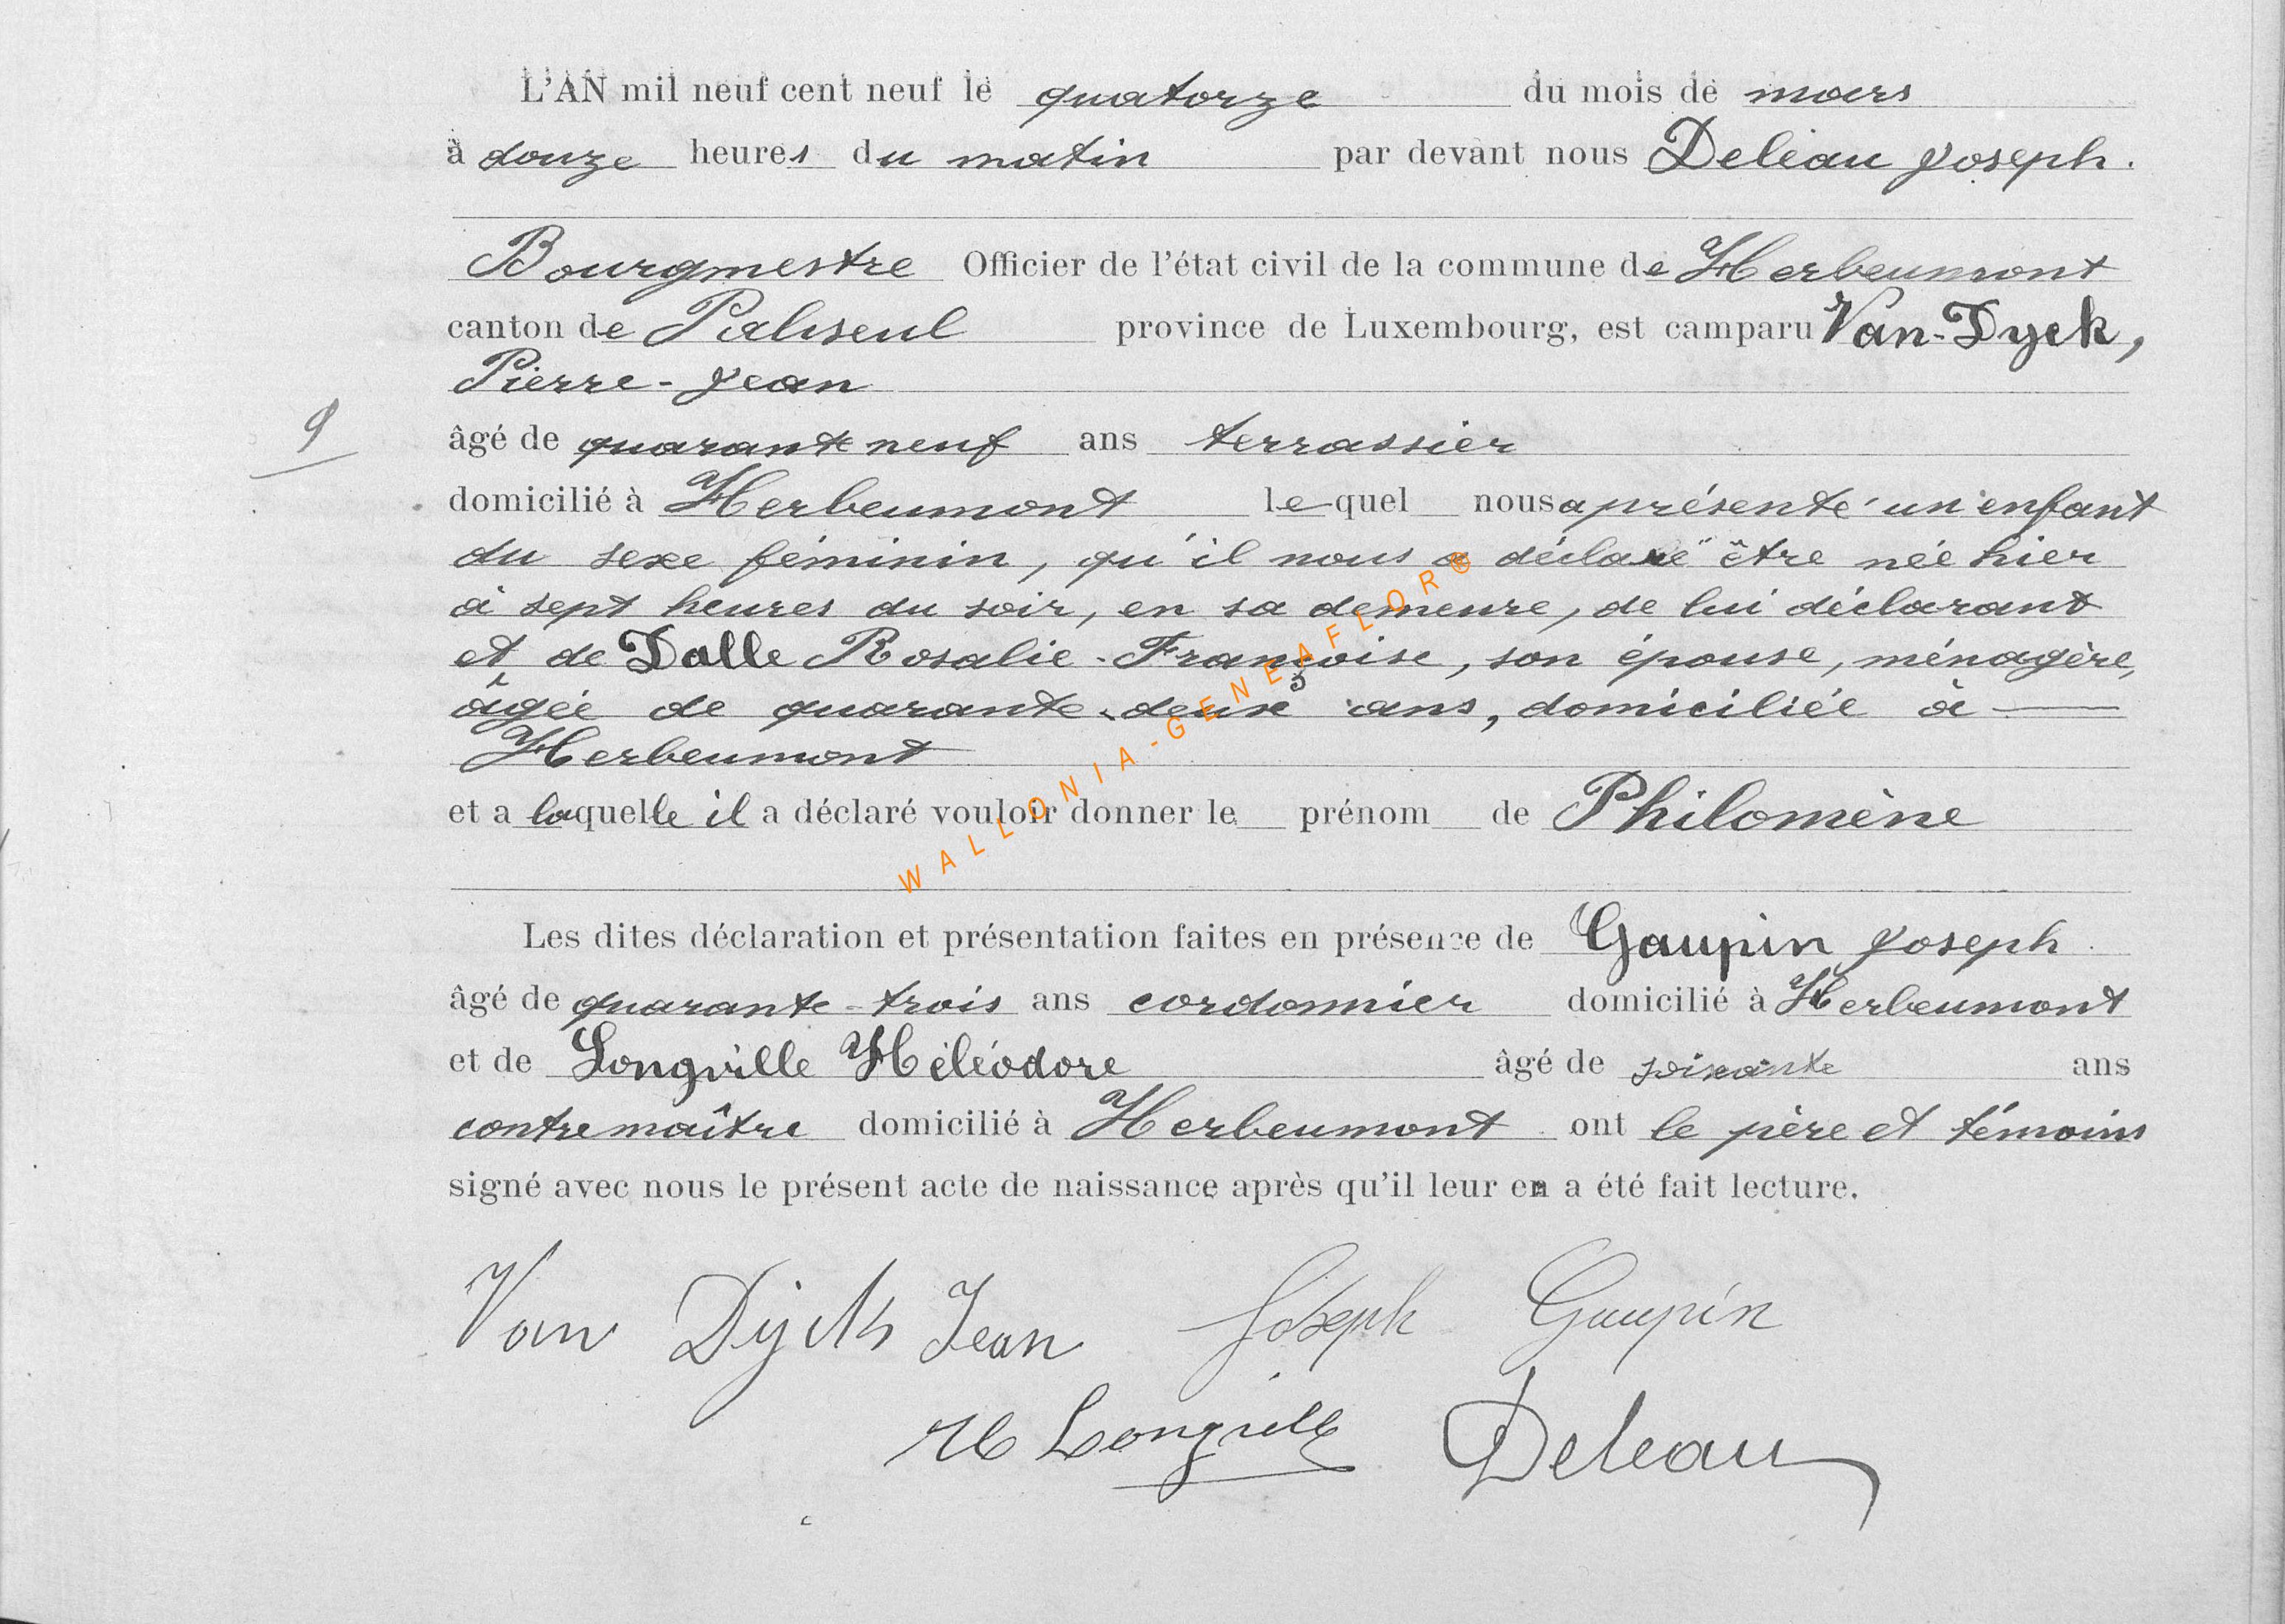 L'AN mil neuf cent neuf le quatorze du mois de mars
à douze heures du matin par devant nous Deleau Joseph.
Bourgmestre Officier de l'état civil de la commune de Herbeumont
canton de Paliseul province de Luxembourg, est camparu Van-Dyck,
Pierre-Jean
9
âgé de quarante neuf ans terrassier
domicilié à Herbeumont lequel nous a présenté un enfant
du sexe féminin, qu'il nous a déclaré être née hier
à sept heures du soir, en sa demeure, de lui déclarant
et de Dalle Rosalie-Françoise, son épouse, ménagère,
âgée de quarante-deux ans, domiciliée à —
Herbeumont
et a laquelle il a déclaré vouloir donner le prénom de Philomène
WALLONIA-GENEAFLOR®
Les dites déclaration et présentation faites en présence de Gaupin Joseph
âgé de quarante-trois ans cordonnier domicilié à Herbeumont
et de Longville Héléodore âgé de soixante ans
contremaître domicilié à Herbeumont ont le père et témoins
signé avec nous le présent acte de naissance après qu'il leur en a été fait lecture.
Van Dijck Jean Joseph Gaupin
H Longville Deleau